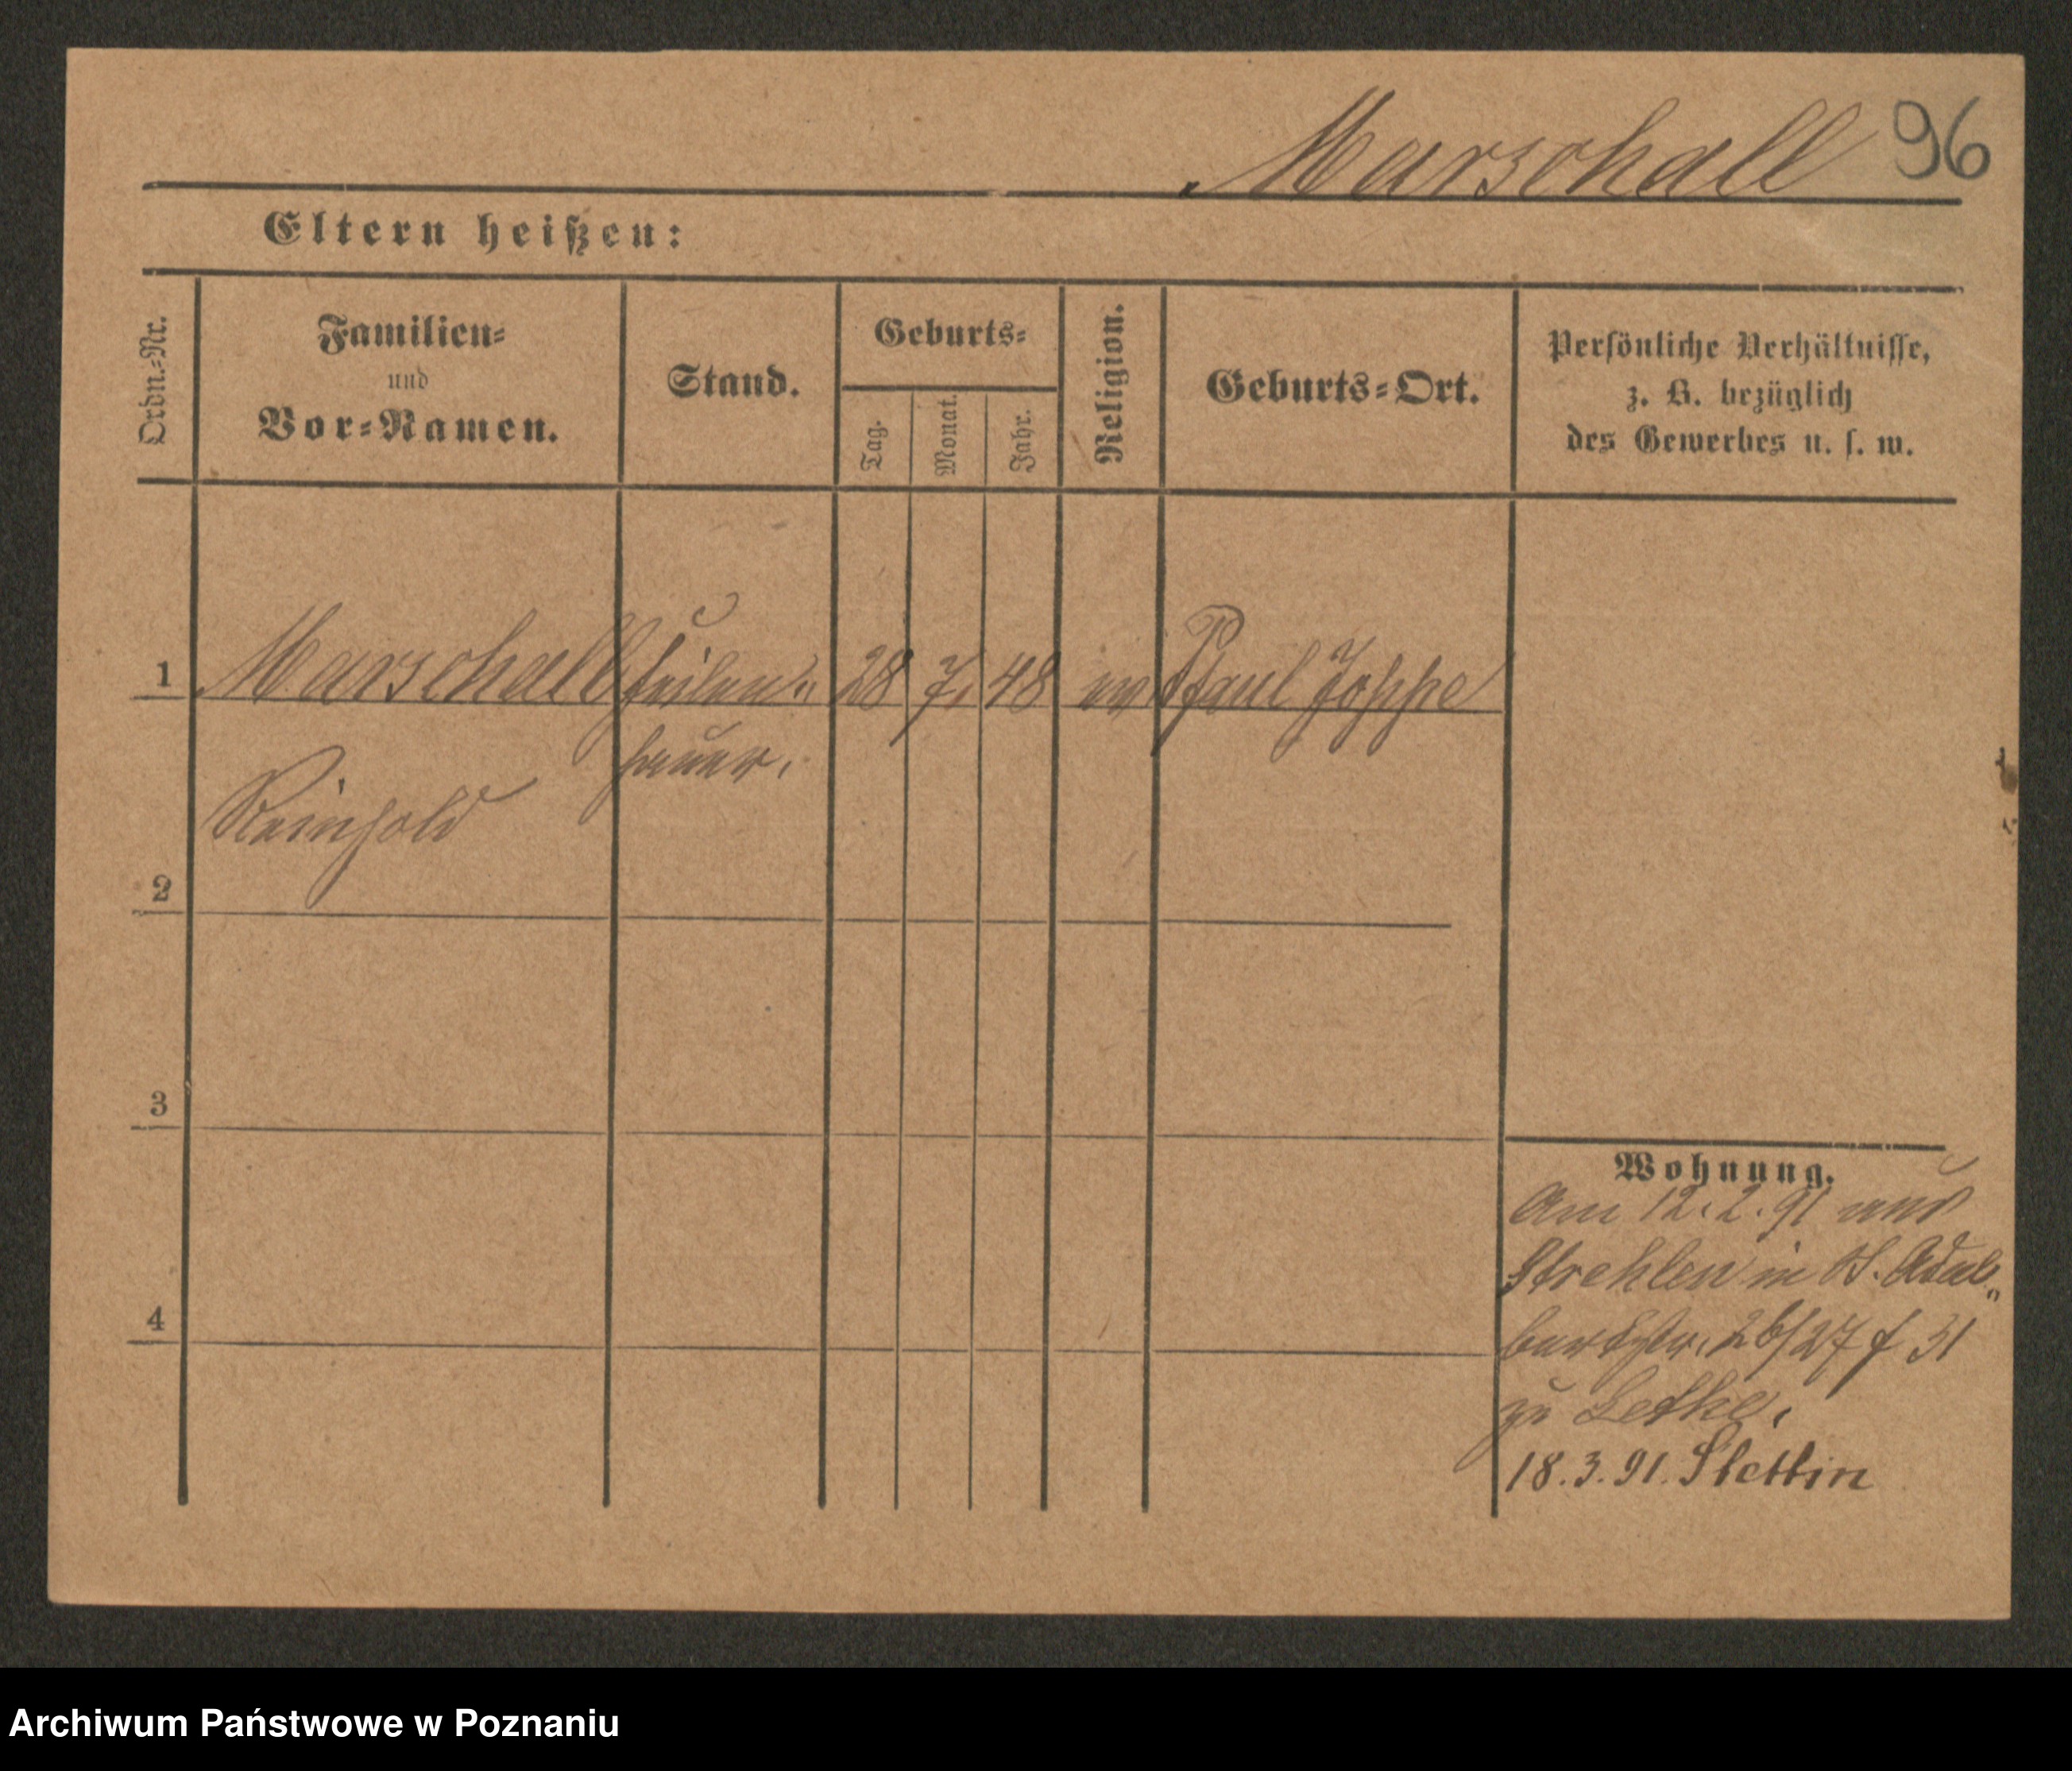 Marschall 96
Eltern heißen:
Ordn.-Nr.
Familien-
und
Vor-Namen.
Stand.
Geburts-
Tag.
Monat.
Jahr.
Religion.
Geburts-Ort.
Persönliche Verhältnisse,
z. B. bezüglich
des Gewerbes u. s. w.
1 Marschall Feilen- 28 7. 48 ev Paul Joppe
hauer.
Reinhold
2
3
4
Wohnung.
Am 12.2.91 aus
Strehlen in St. Adal-
bertstr. 26/27 f 31
zu Lethe.
18.3.91. Stettin
Archiwum Państwowe w Poznaniu